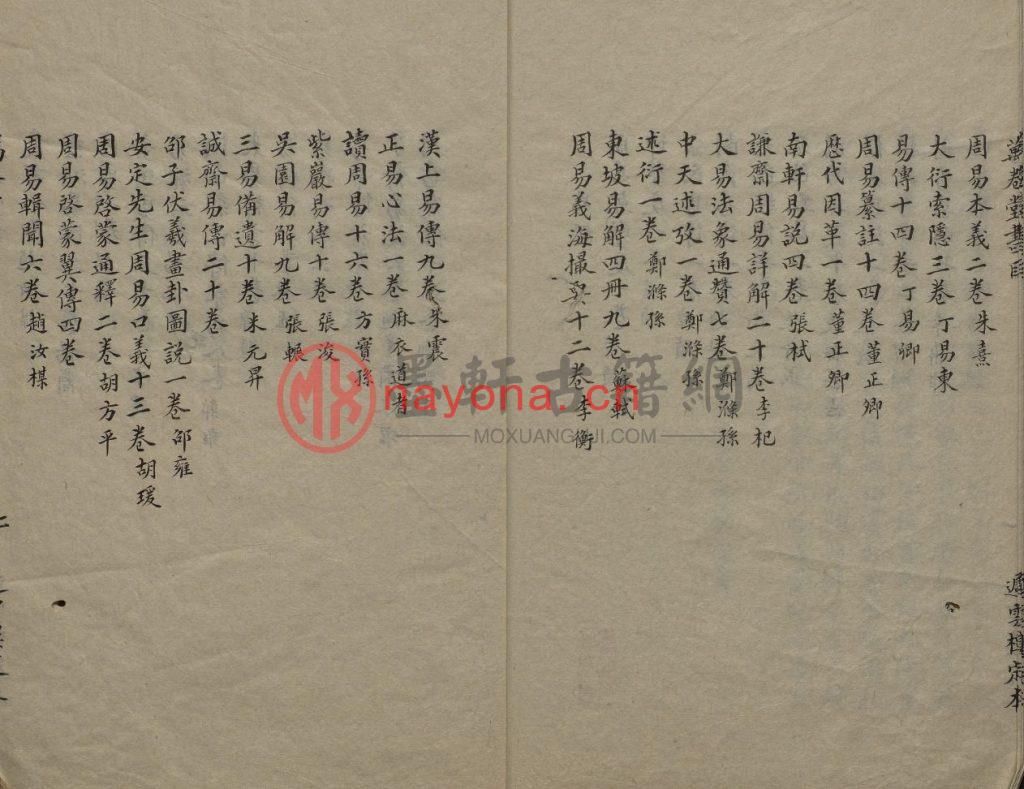 周易本義二卷朱熹
大衍索隱三卷丁易東
易傳十四卷丁易卿
周易纂註十四卷董正卿
歷代因革一卷董正卿
南軒易說四卷張栻
謙齋周易詳解二十卷李杞
大易法象通贊七卷鄭滁孫
中天述攷一卷鄭滁孫
述衍一卷鄭滁孫
東坡易解四冊九卷蘇軾
周易義海撮要十二卷李衡
漢上易傳九卷朱震
正易心法一卷麻衣道者
讀周易十六卷方實孫
紫巖易傳十卷張浚
吳園易解九卷張根
三易備遺十卷朱元昇
誠齋易傳二十卷
邵子伏羲畫卦圖說一卷邵雍
安定先生周易口義十三卷胡瑗
周易啓蒙通釋二卷胡方平
周易啓蒙翼傳四卷
周易輯聞六卷趙汝楳
墨軒古籍網
nayona.cn